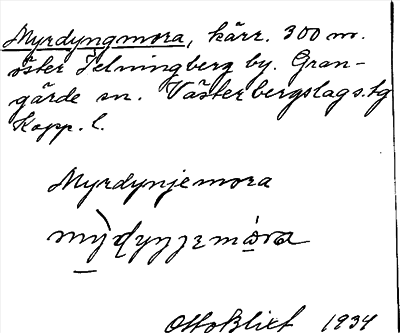 Myrdyngmora, kärr. 300 m.
öster Telningberg by. Gran-
gärde sn. Västerbergslags.tg
Kopp. l.
Myrdynjemora
Otto Blixt 1934